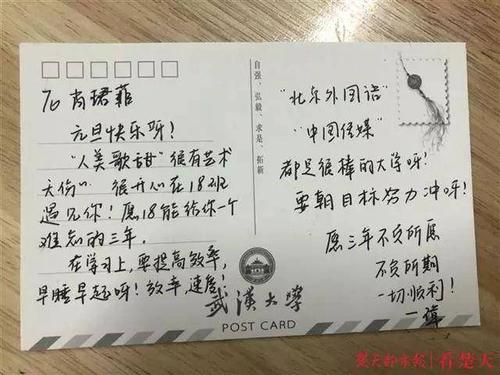 To 肖珺菲
元旦快乐呀！
"人美歌甜"很有艺术
天份" 很开心在18班
遇见你！愿18能给你一个
难忘的三年。
在学习上，要提高效率，
早睡早起呀！效率，速度！
自强、弘毅、求是、拓新
武汉大学
POST CARD
"北京外国语"
"中国传媒"
都是很棒的大学呀！
要朝目标努力冲呀！
愿三年不负所愿
不负所期
一切顺利！
楚天都市报|看楚天